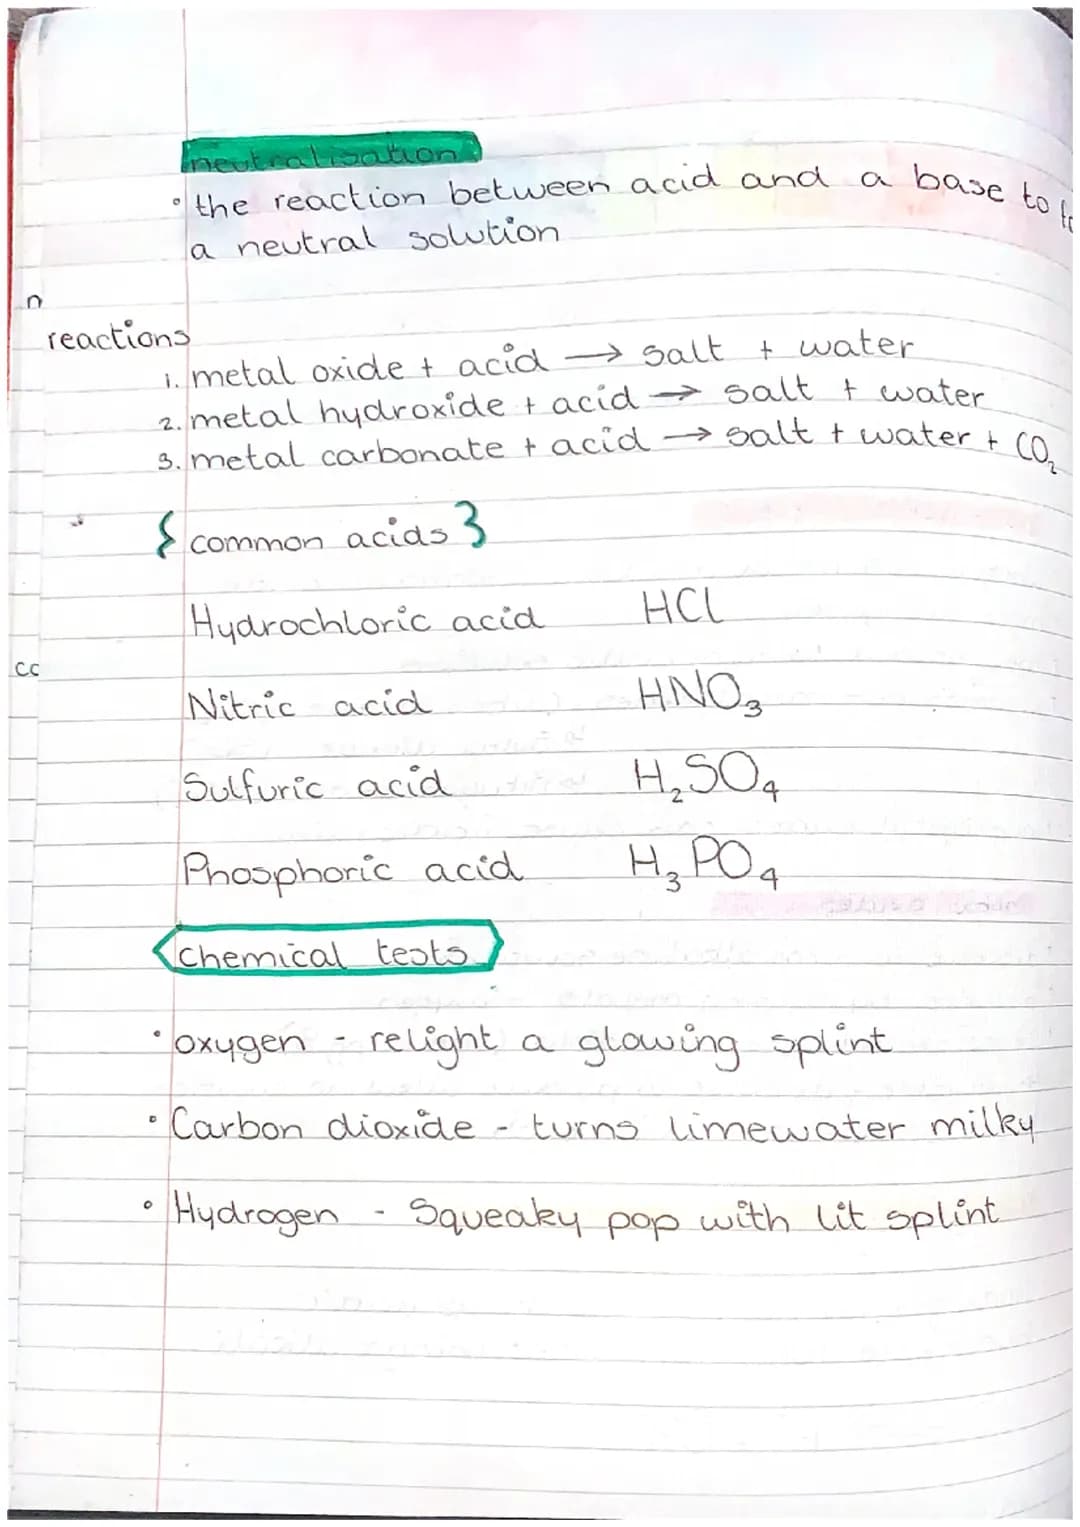 neutralisation
• the reaction between acid and a base to
a neutral solution
n
reactions
1. metal oxide + acid → salt + water
2. metal hydroxide + acid → salt + water
3. metal carbonate + acid → salt + water + CO₂
{ common acids }
Hydrochloric acid HCl
cc
Nitric acid HNO₃
Sulfuric acid H₂SO₄
Phosphoric acid H₃PO₄
chemical tests
• oxygen - relight a glowing splint
• Carbon dioxide - turns limewater milky
• Hydrogen - Squeaky pop with lit splint